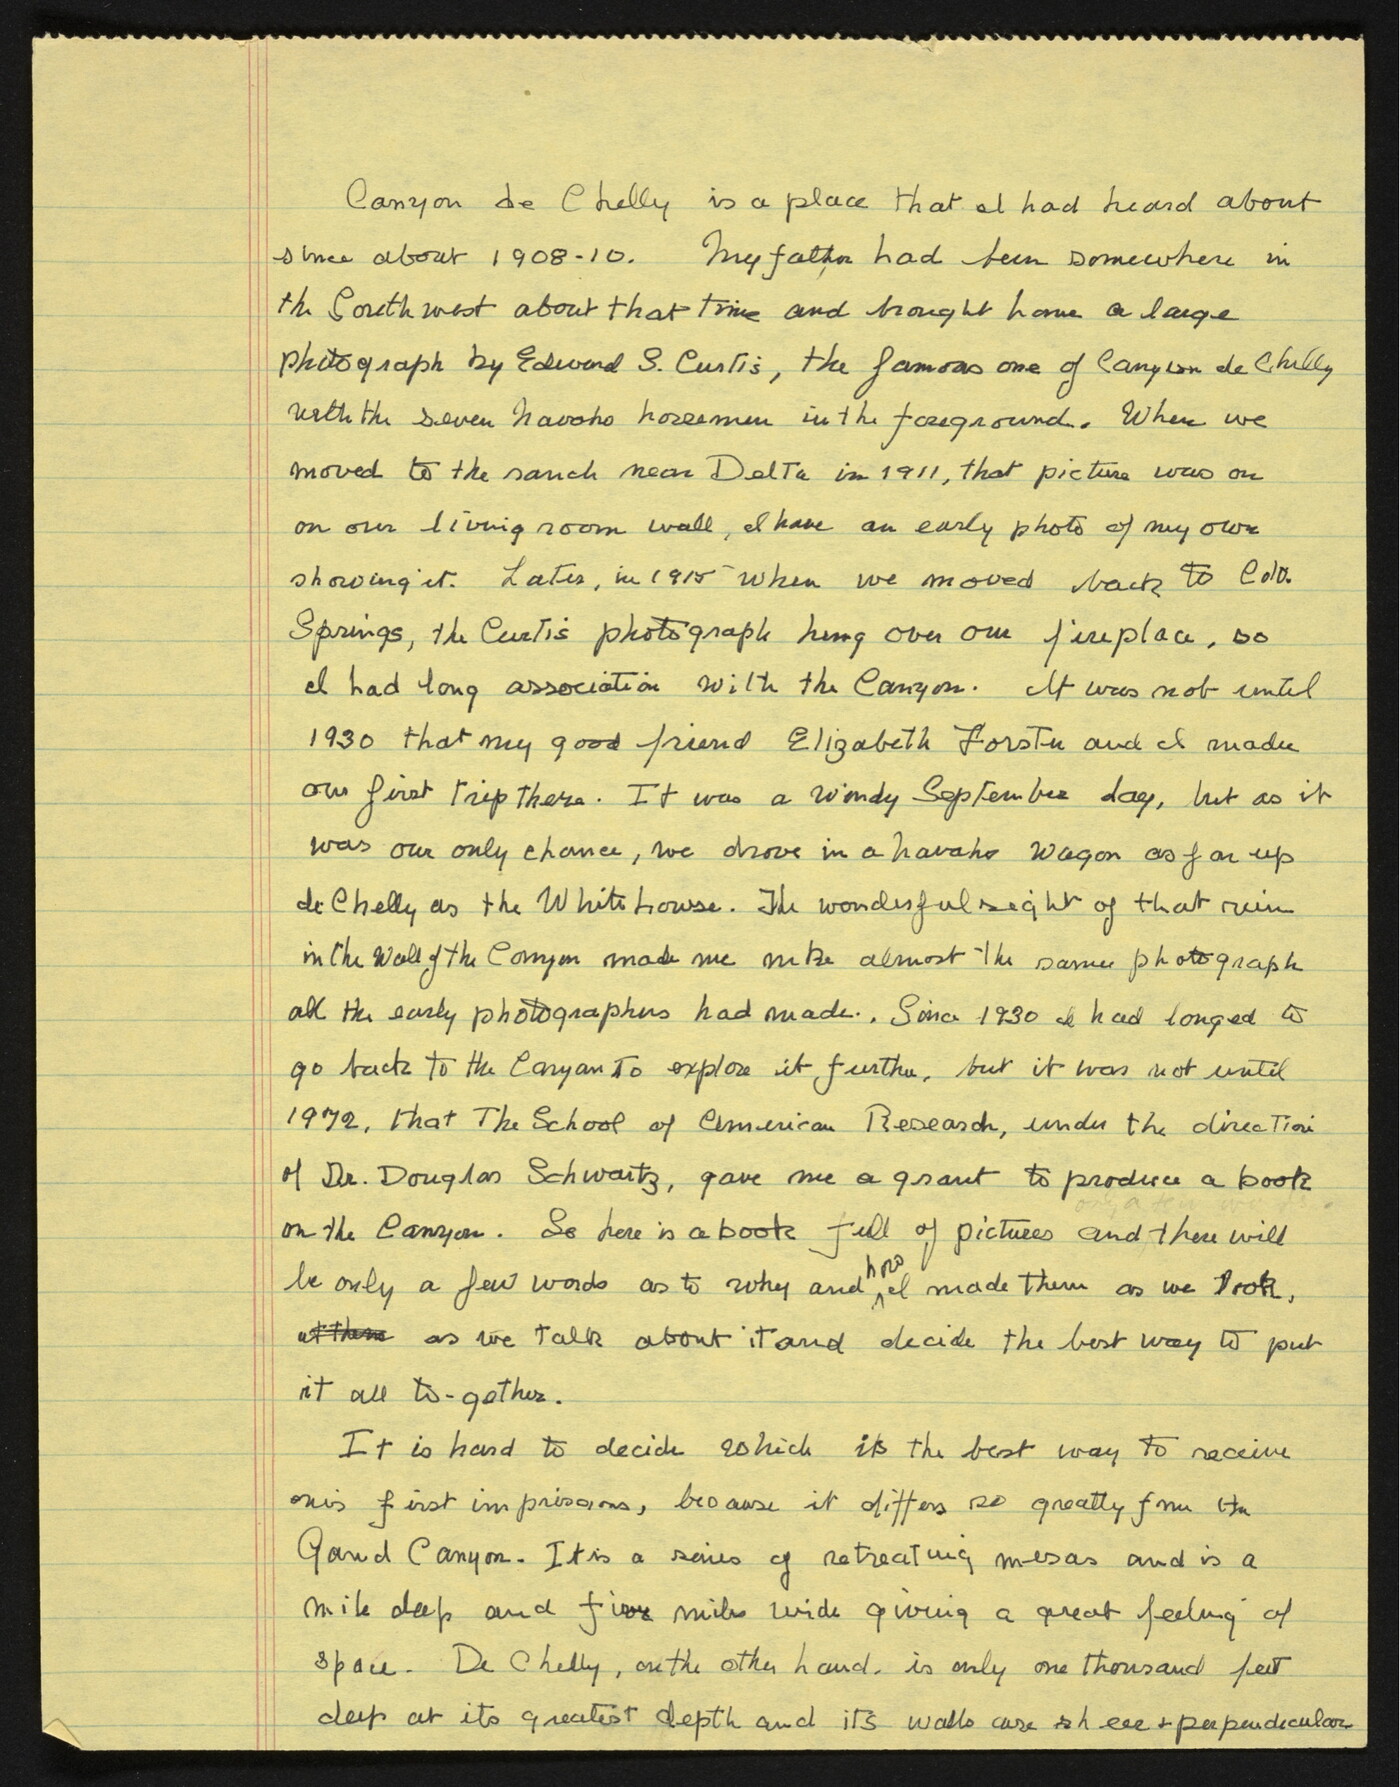 Canyon de Chelly is a place that I had heard about
since about 1908-10. My father had been somewhere in
the Southwest about that time and brought home a large
photograph by Edward S. Curtis, the famous one of Canyon de Chelly
with the seven Navaho horsemen in the foreground. When we
moved to the ranch near Delta in 1911, that picture was on
on our living room wall, I have an early photo of my own
showing it. Later, in 1915 when we moved back to Colo.
Springs, the Curtis photograph hung over our fireplace, so
I had long association with the Canyon. It was not until
1930 that my good friend Elizabeth Forster and I made
our first trip there. It was a windy September day, but as it
was our only chance, we drove in a Navaho wagon as far up
de Chelly as the White house. The wonderful sight of that ruin
in the Wall of the Canyon made me make almost the same photograph
all the early photographers had made. Since 1930 I had longed to
go back to the Canyon to explore it further, but it was not until
1972, that The School of American Research, under the direction
of Dr. Douglas Schwartz, gave me a grant to produce a book
on the Canyon. So here is a book full of pictures and there will
be only a few words as to why and how I made them as we look,
as we talk about it and decide the best way to put
it all to-gether.
It is hard to decide which is the best way to receive
one's first impressions, because it differs so greatly from the
Grand Canyon. It is a series of retreating mesas and is a
mile deep and five miles wide giving a great feeling of
space. De Chelly, on the other hand, is only one thousand feet
deep at its greatest depth and its walls are sheer + perpendicular